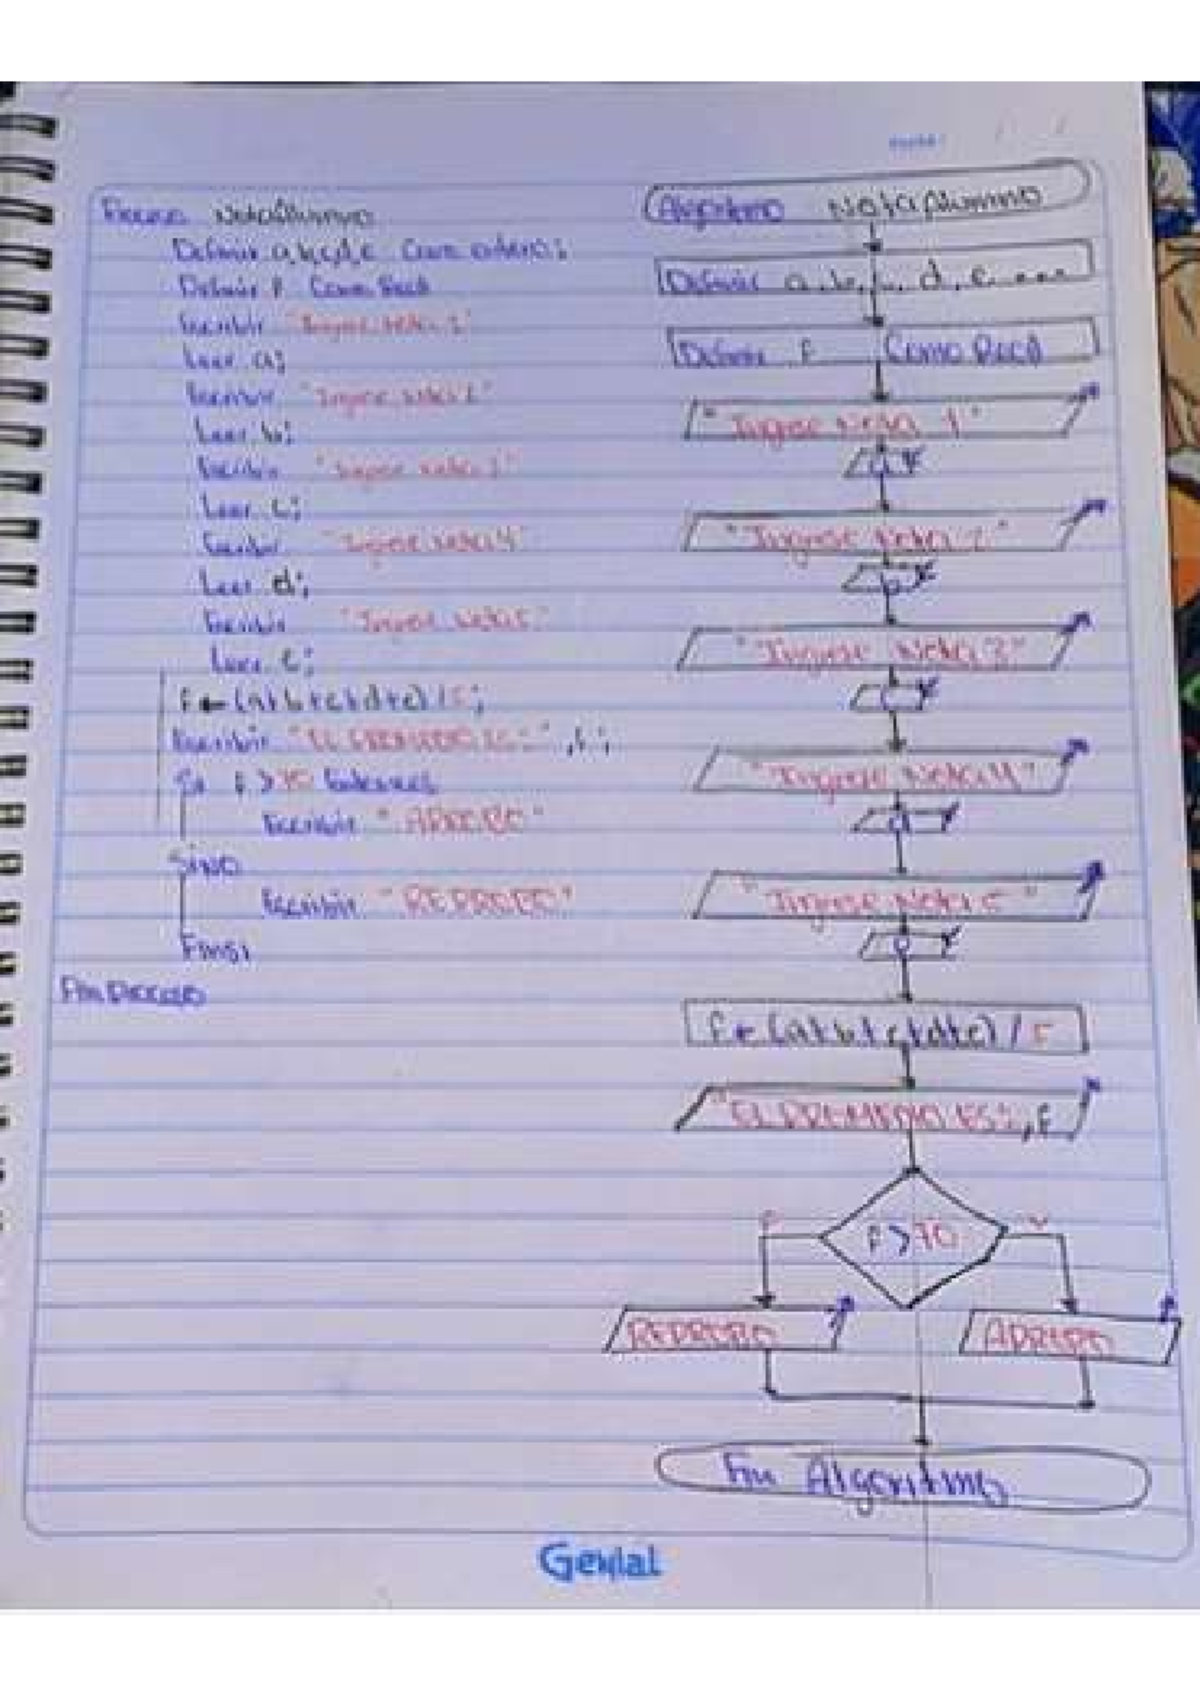 Proceso NotaAlumno
Definir a,b,c,d,e Como entero;
Definir f Como Real
Escribir "Ingrese nota 1"
Leer a;
Escribir "Ingrese nota 2"
Leer b;
Escribir "Ingrese nota 3"
Leer c;
Escribir "Ingrese nota 4"
Leer d;
Escribir "Ingrese nota 5"
Leer e;
f ← (a+b+c+d+e) / 5;
Escribir "EL PROMEDIO ES:" , f ;
Si f > 70 Entonces
Escribir "APROBO"
SiNO
Escribir "REPROBO"
FinSi
FinProceso
Algoritmo NotaAlumno
Definir a, b, c, d, e, ...
Definir f Como Real
"Ingrese Nota 1"
a
"Ingrese Nota 2"
b
"Ingrese Nota 3"
c
"Ingrese Nota 4"
d
"Ingrese Nota 5"
e
f ← (a+b+c+d+e) / 5
"EL PROMEDIO ES:, f
f > 70
F
V
REPROBO
APROBO
Fin Algoritmo
Genial